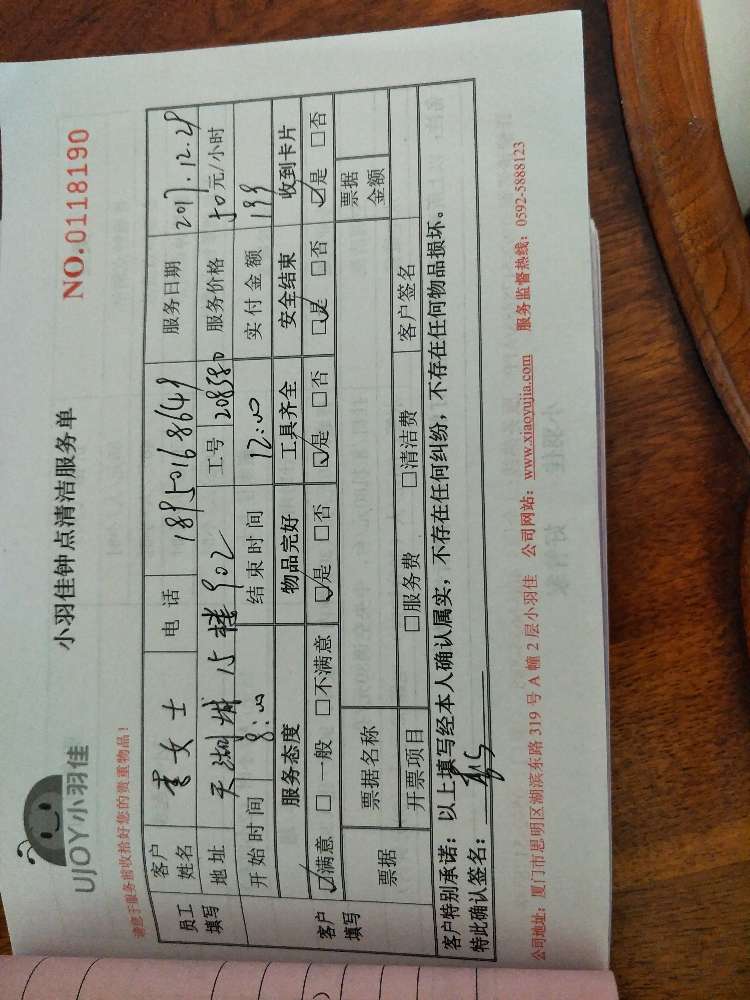 UJOY小羽佳
小羽佳钟点清洁服务单
NO.0118190
请您于服务前收拾好您的贵重物品！
员工填写 客户姓名 女士 电话 18950168649 服务日期 2017.12.29
地址 天湖城 15楼902 工号 208580 服务价格 50元/小时
开始时间 8:00 结束时间 12:00 实付金额 199
客户填写 服务态度 物品完好 工具齐全 安全结束 收到卡片
☑满意 □一般 □不满意 ☑是 □否 ☑是 □否 ☑是 □否 ☑是 □否
票据 票据名称 票据金额
开票项目 □服务费 □清洁费 客户签名
客户特别承诺：以上填写经本人确认属实，不存在任何纠纷，不存在任何物品损坏。
特此确认签名：
公司地址：厦门市思明区湖滨东路 319 号 A 幢 2 层小羽佳 公司网站：www.xiaoyujia.com 服务监督热线：0592-5888123